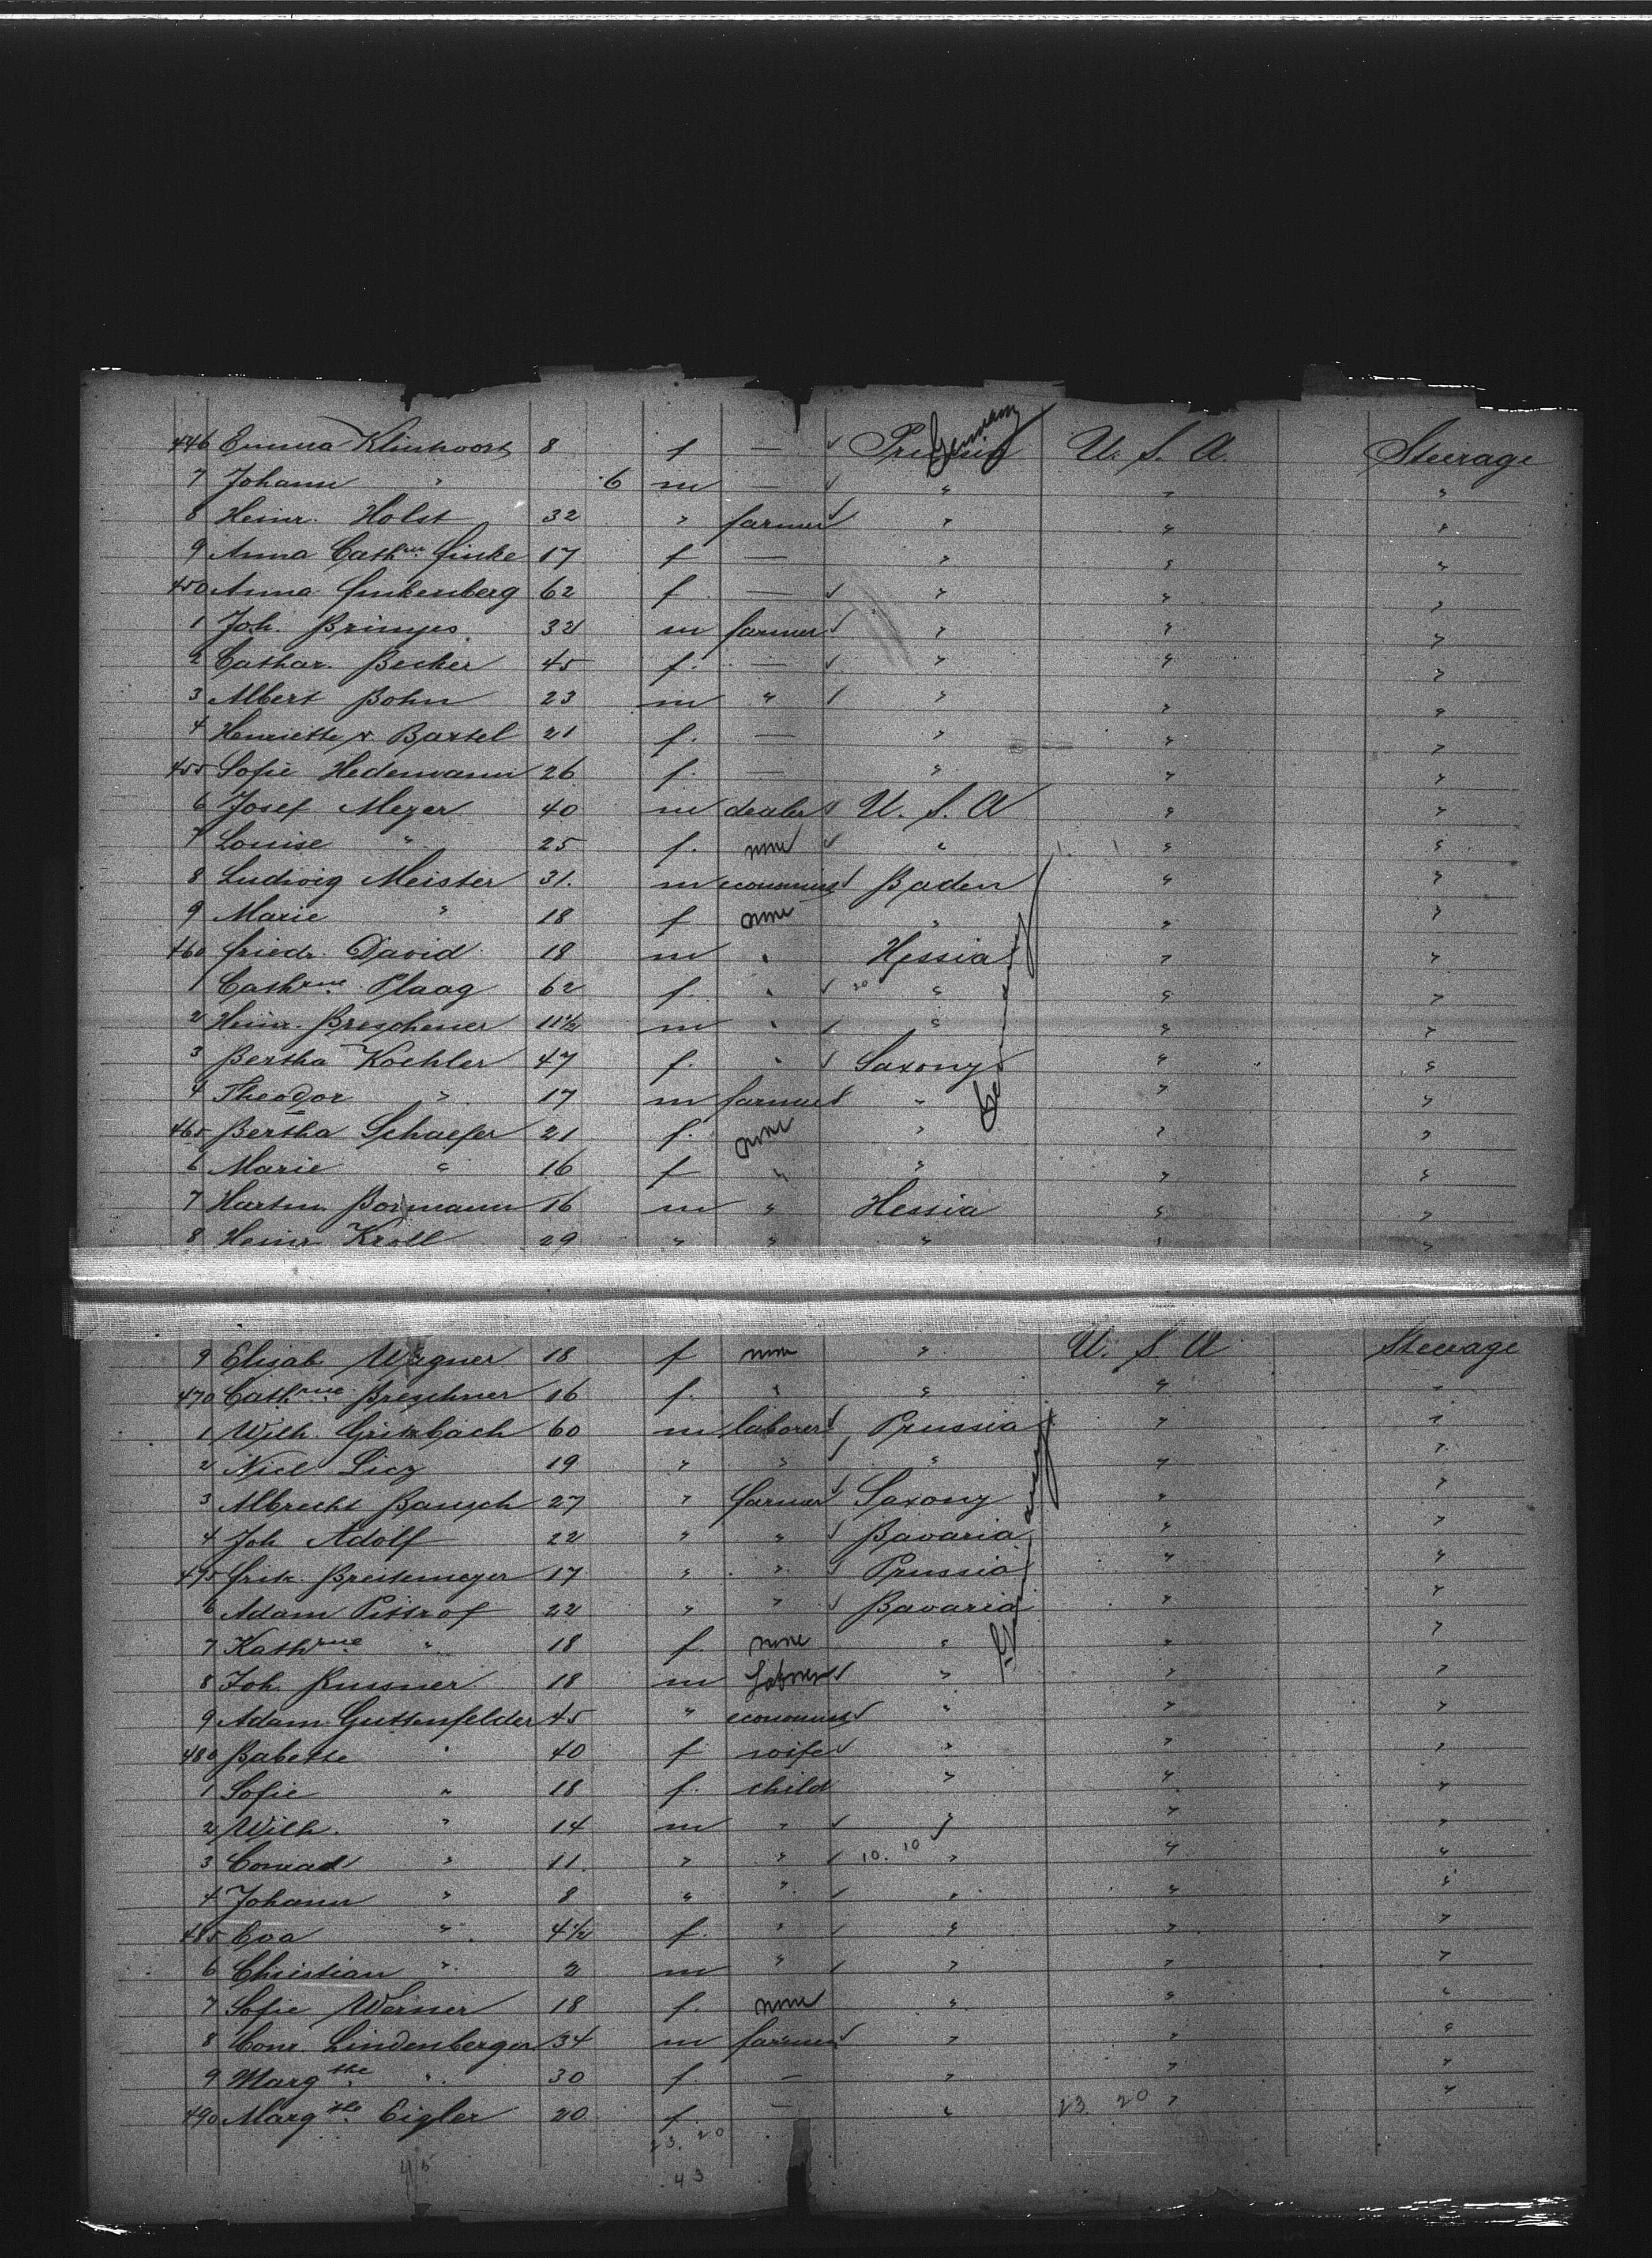 446 Emma Klintworth 8 f — ✓ Prussia Germany U. S. A. Steerage
7 Johann " 6 m — ✓ " " "
8 Heinr. Holst 32 " farmer ✓ " " "
9 Anna Cathne Finke 17 f — " " "
450 Anna Finkenberg 62 f. — ✓ " " "
1 Joh. 32 m farmer ✓ " " "
2 Cathar. Becker 45 f. — ✓ " " "
3 Albert Bohn 23 m " ✓ " " "
4 Henriette v. Bartel 21 f. — " " "
455 Sofie Hedemann 26 f. — " " "
6 Josef Meyer 40 m dealer ✓ U. S. A " "
7 Louise " 25 f. none ✓ " " "
8 Ludwig Meister 31. m economist ✓ Baden " "
9 Marie " 18 f none " " "
460 Friedr. David 18 m " Hessia " "
1 Cathrne Plaag 62 f. " ✓ 20 " " "
2 Heinr. Breschener 11 1/2 m " ✓ " " "
3 Bertha Koehler 47 f. " ✓ Saxony Germany " "
4 Theodor " 17 m farmer ✓ " " "
465 Bertha Schaefer 21 f. none " " "
6 Marie " 16 f " " " "
7 Hartm. Bormann 16 m " Hessia " "
8 Heinr Kroll 29 " " " " "
9 Elisab. Wagner 18 f none " U. S. A Steerage
470 Cathrne Breschner 16 f. " " " "
1 Wilh. Gritzbach 60 m laborer ✓ Prussia " "
2 Nicl Licz 19 " " ✓ " " "
3 Albrecht Bausch 27 " farmer ✓ Saxony " "
4 Joh Adolf 22 " " ✓ Bavaria " "
475 Fritz. Breitemeyer 17 " " ✓ Prussia " "
6 Adam Pittrof 22 " " ✓ Bavaria Germany " "
7 Kathrne " 18 f. none " " "
8 Joh. Russner. 18 m Laborer ✓ " " "
9 Adam Guttenfelder 45 " economist ✓ " " "
480 Babette " 40 f wife ✓ " " "
1 Sofie " 18 f. child " " "
2 Wilh. " 14 m " ✓ " " "
3 Conrad " 11. " " ✓ 10. 10 " " "
4 Johann " 8 " " ✓ " " "
485 Eva " 4 1/2 f. " ✓ " " "
6 Christian " 2 m " ✓ " " "
7 Sofie Werner 18 f. none " " "
8 Conr. Lindenberger 34 m farmer ✓ " " "
9 Margthe " 30 f. — " " "
490 Margthe Eigler 20 f. — " 23 20 " "
23. 20
45 43